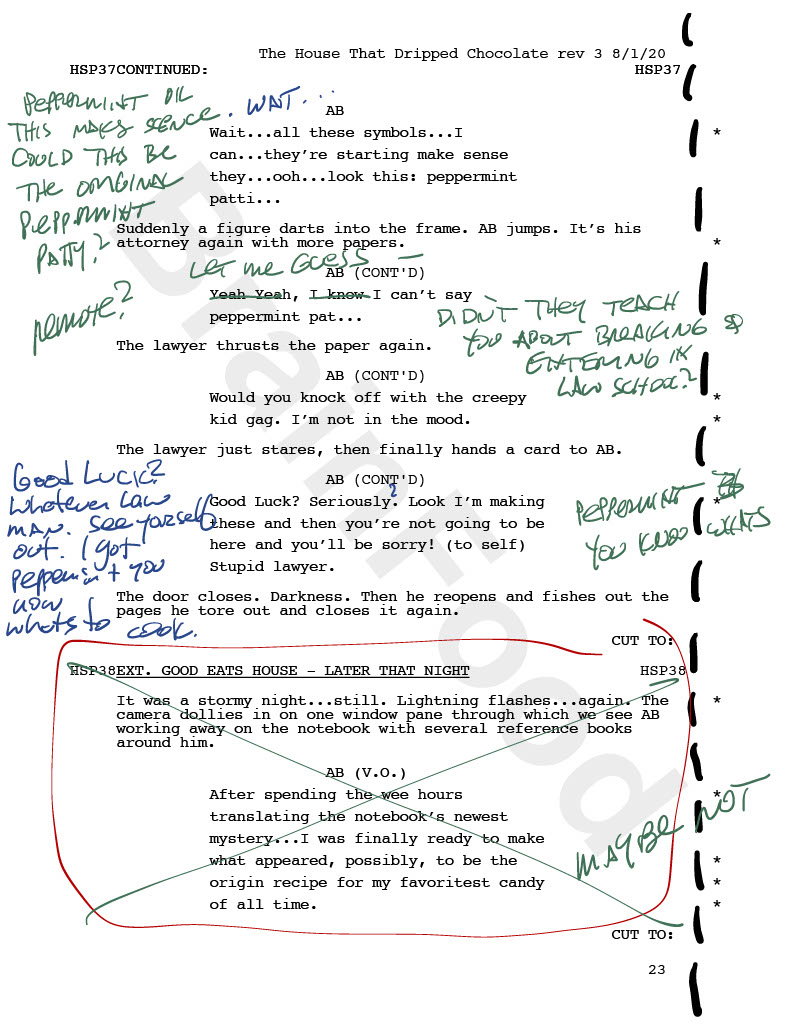 The House That Dripped Chocolate rev 3 8/1/20
HSP37CONTINUED: HSP37
PEPPERMINT OIL
THIS MAKES SCENCE. WAIT...
COULD THIS BE
THE ORIGINAL
PEPPERMINT
PATTY?
AB
Wait...all these symbols...I *
can...they're starting make sense
they...ooh...look this: peppermint
patti...
Suddenly a figure darts into the frame. AB jumps. It's his
attorney again with more papers. *
LET ME GUESS —
AB (CONT'D)
Yeah Yeah, I know I can't say
peppermint pat...
remote?
DIDN'T THEY TEACH
YOU ABOUT BREAKING &
ENTERING IN
LAW SCHOOL?
The lawyer thrusts the paper again.
AB (CONT'D)
Would you knock off with the creepy *
kid gag. I'm not in the mood. *
The lawyer just stares, then finally hands a card to AB.
Good Luck?
Whatever Law
man. See yarself
out. I got
peppermint you
now
whats to cook.
AB (CONT'D)
Good Luck? Seriously.? Look I'm making *
these and then you're not going to be
here and you'll be sorry! (to self)
Stupid lawyer.
PEPPERMINT
YOU KNOW WHATS
The door closes. Darkness. Then he reopens and fishes out the
pages he tore out and closes it again.
CUT TO:
HSP38EXT. GOOD EATS HOUSE – LATER THAT NIGHT HSP38
It was a stormy night...still. Lightning flashes...again. The *
camera dollies in on one window pane through which we see AB
working away on the notebook with several reference books
around him.
AB (V.O.)
After spending the wee hours *
translating the notebook's newest
mystery...I was finally ready to make
what appeared, possibly, to be the *
origin recipe for my favoritest candy *
of all time. *
MAYBE NOT
CUT TO:
23
BrainFood